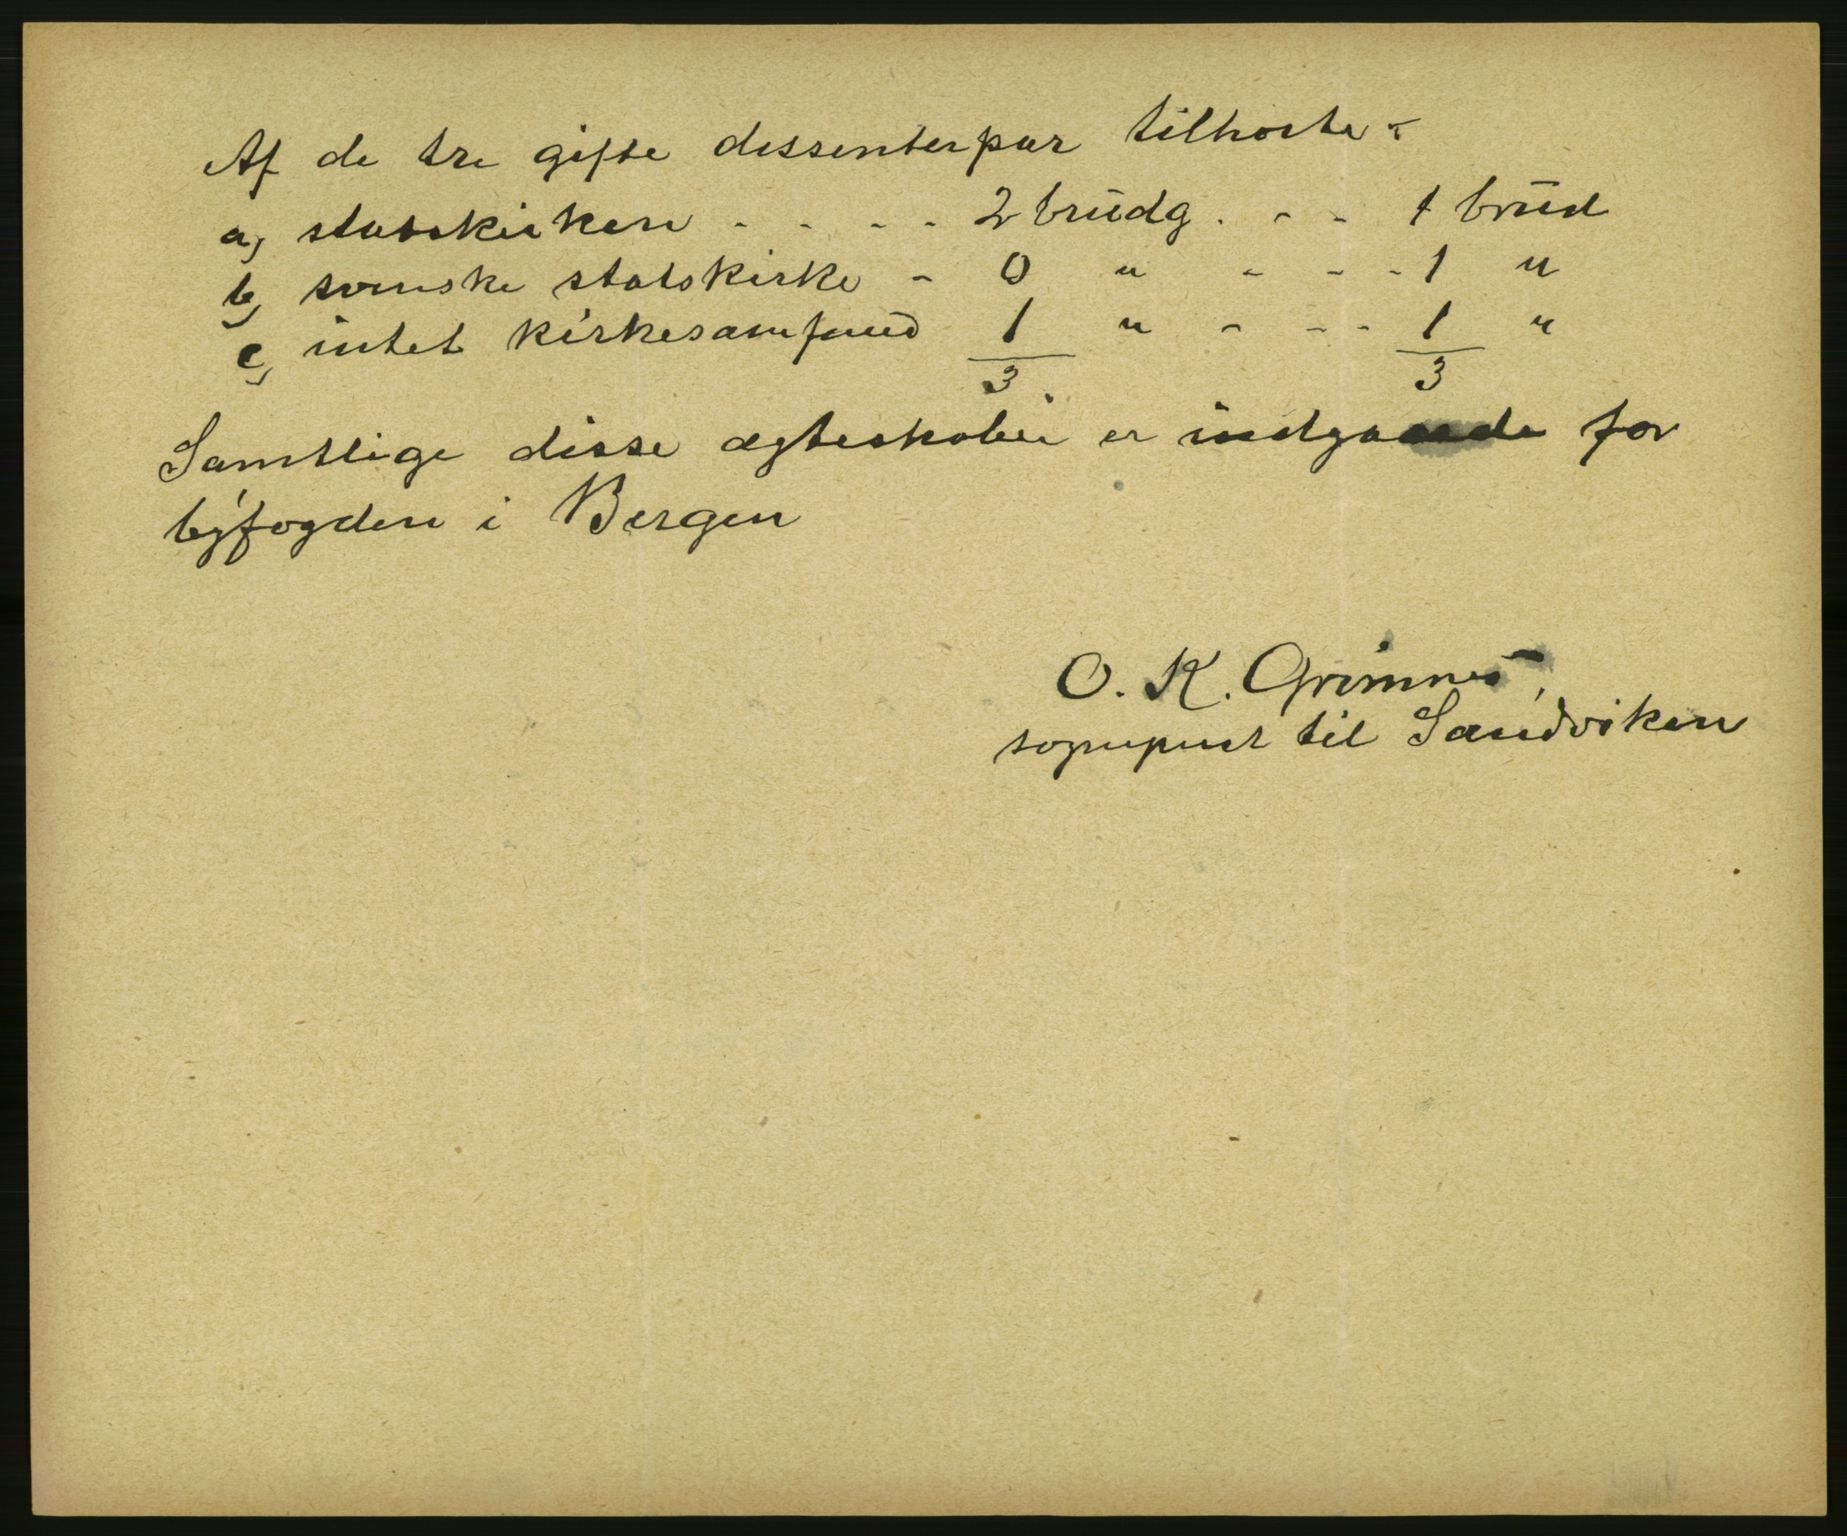 Af de tre gifte dissenterpar tilhørte:
a, statskirken - - - - 2 brudg. - - 1 brud
b, svenske statskirke - 0 " - - - 1 "
c, intet kirkesamfund 1 " - - - 1 "
3 3
Samtlige disse ægteskaber er indgaaede for
byfogden i Bergen
O. K. Grimnes,
sogneprest til Sandviken